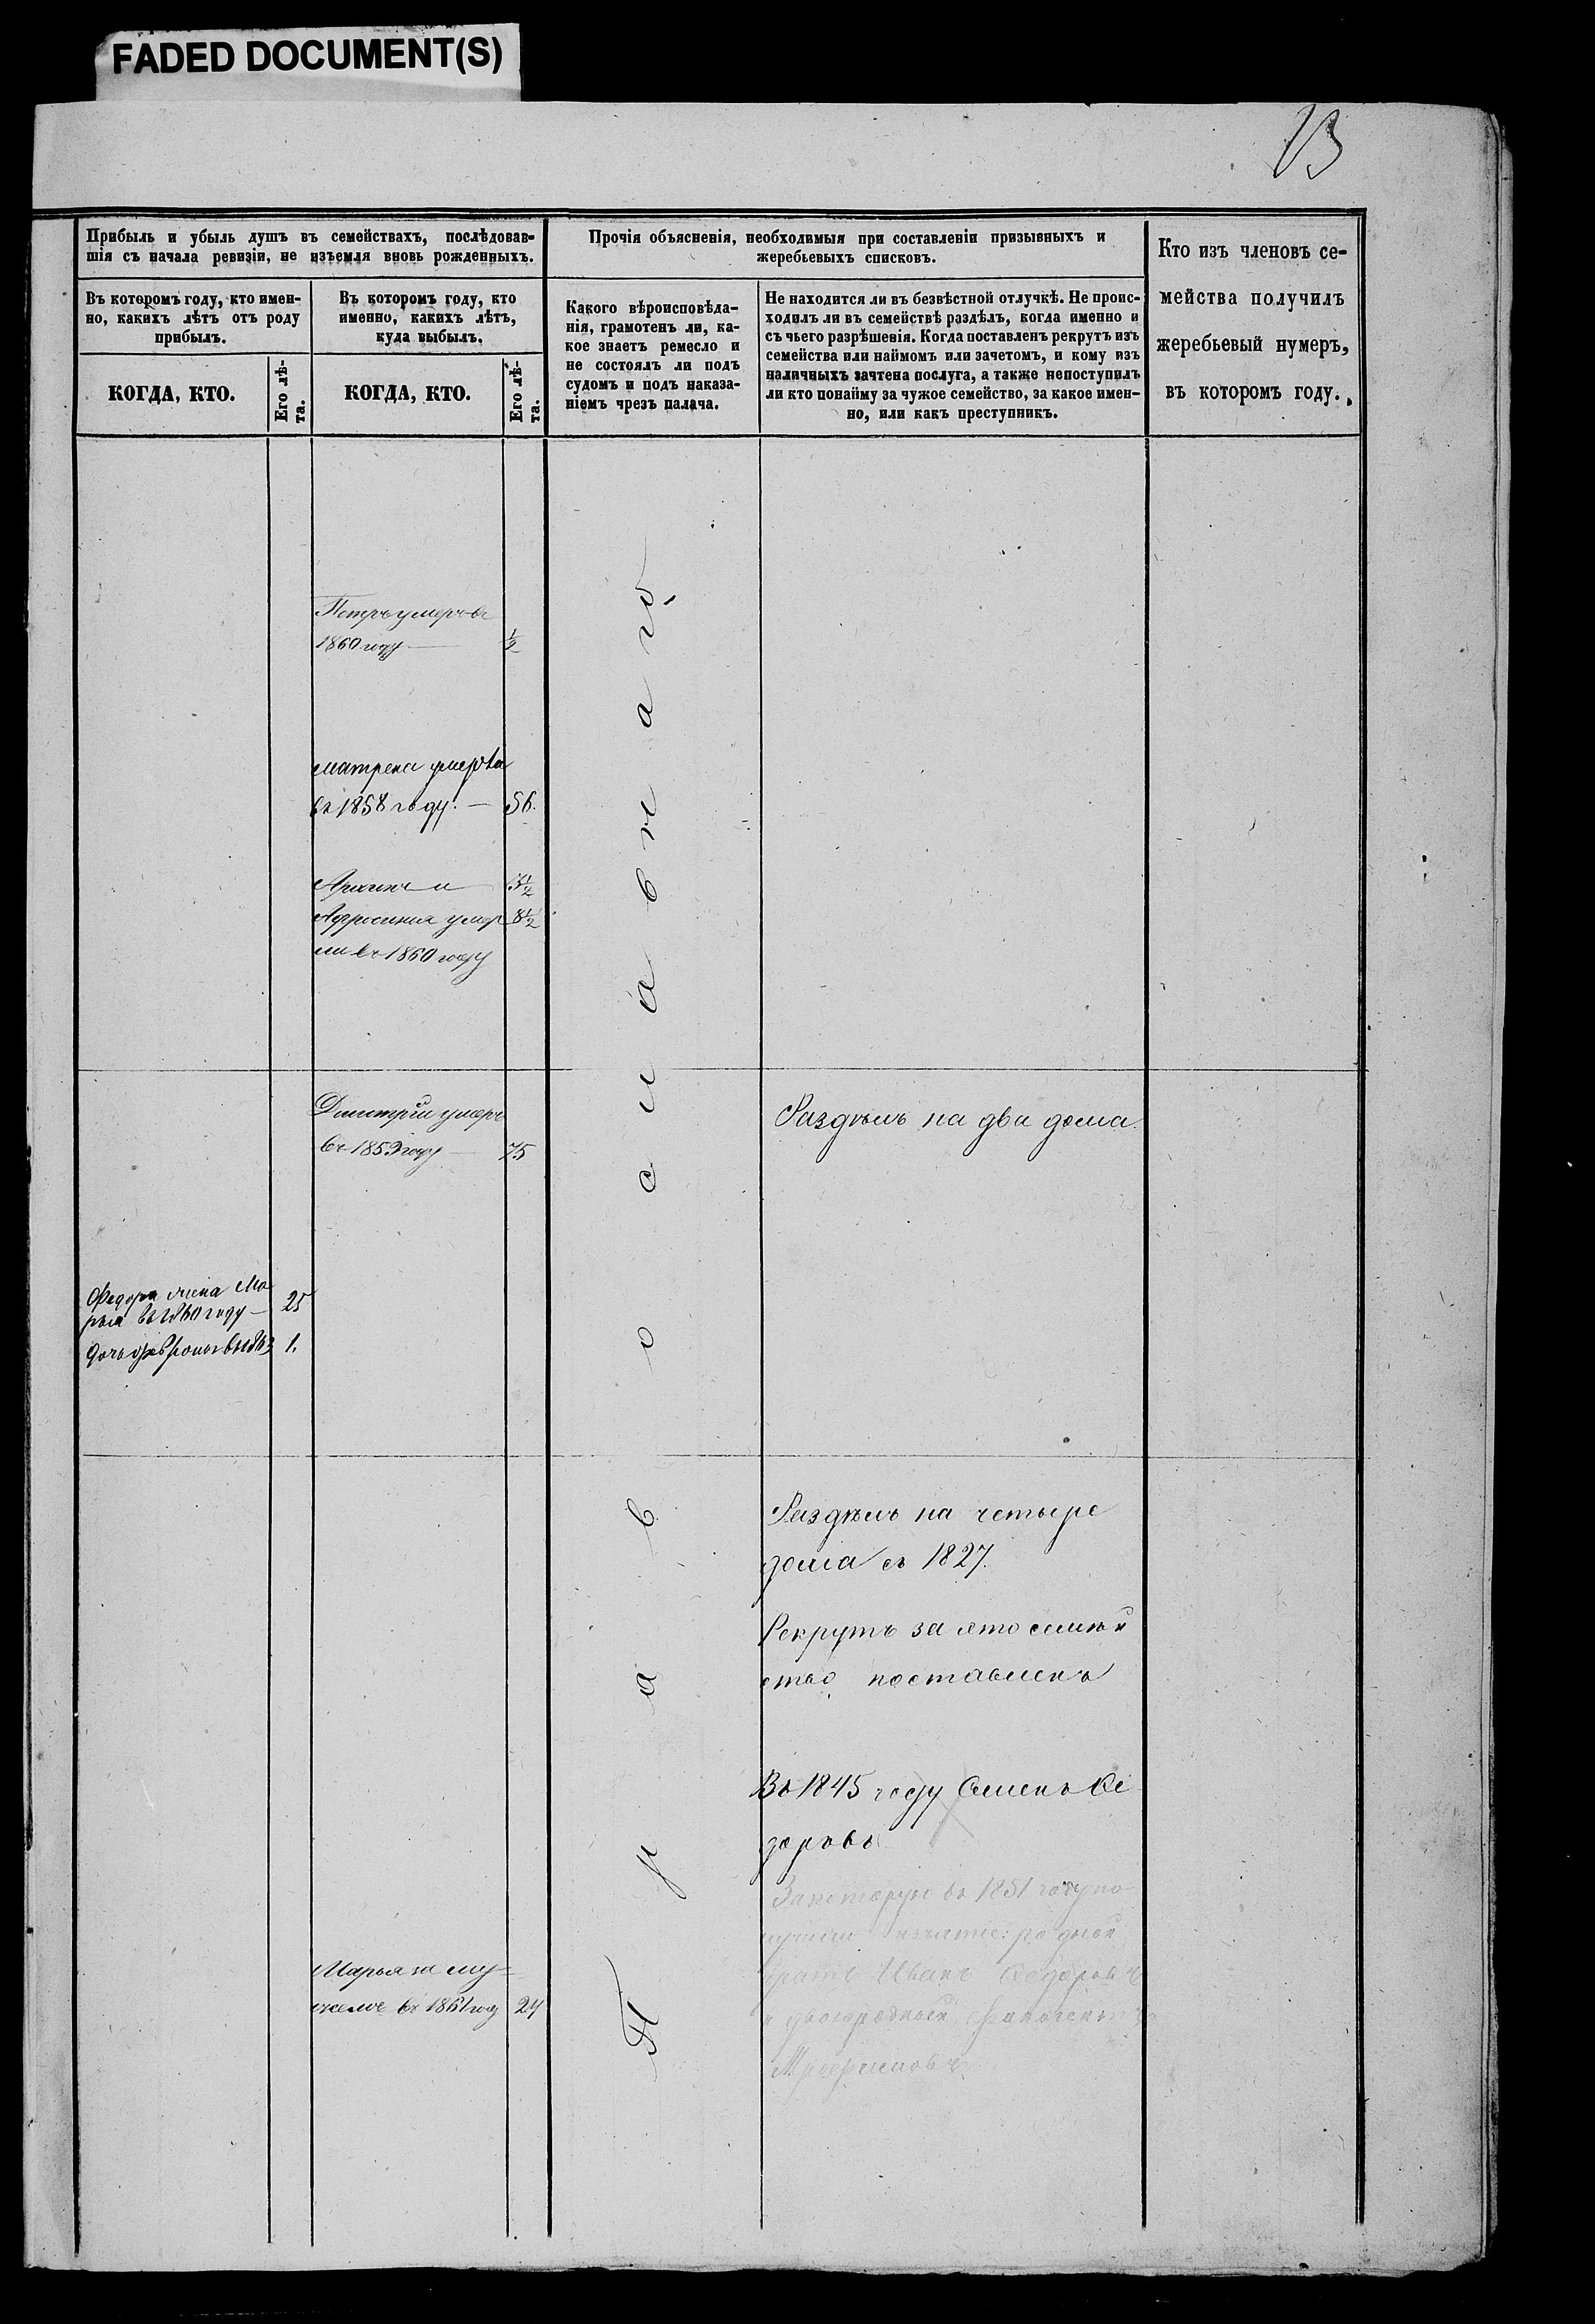 FADED DOCUMENT(S)
13
Прибыль и убыль душъ въ семействахъ, послѣдовав-
шія съ начала ревизіи, не изъемля вновь рожденныхъ.
Въ которомъ году, кто имен-
но, какихъ лѣтъ отъ роду
прибылъ.
КОГДА, КТО.
Его лѣ-
та.
Въ которомъ году, кто
именно, какихъ лѣтъ,
куда выбылъ.
КОГДА, КТО.
Его лѣ-
та.
Прочія объясненія, необходимыя при составленіи призывныхъ и
жеребьевыхъ списковъ.
Какого вѣроисповѣда-
нія, грамотенъ ли, ка-
кое знаетъ ремесло и
не состоялъ ли подъ
судомъ и подъ наказа-
ніемъ чрезъ палача.
Не находится ли въ безвѣстной отлучкѣ. Не проис-
ходилъ ли въ семействѣ раздѣлъ, когда именно и
съ чьего разрѣшенія. Когда поставленъ рекрутъ изъ
семейства или наймомъ или зачетомъ, и кому изъ
наличныхъ зачтена послуга, а также непоступилъ
ли кто понайму за чужое семейство, за какое имен-
но, или какъ преступникъ.
Кто изъ членовъ се-
мейства получилъ
жеребьевый нумеръ,
въ которомъ году.
Петръ умеръ въ
1860 году — ½
Матрена умерла
въ 1858 году. — 56.
и
Афросинія умер 8½
ли въ 1860 году
Дмитрій умеръ
въ 1859 году — 75
Раздѣлъ на два дома.
Федора жена Ма
рья въ 1860 году — 25
дочь 1.
Православнаго
Раздѣлъ на четыре
дома съ 1827.
Рекрутъ за это семѣй
ство поставленъ
Въ 1845 году Семенъ Ѳе
доровъ
За въ 1851 году по
родной
братъ Иванъ Ѳедоровъ
и двоюродный
Марья за му-
жемъ въ 1861 год 24